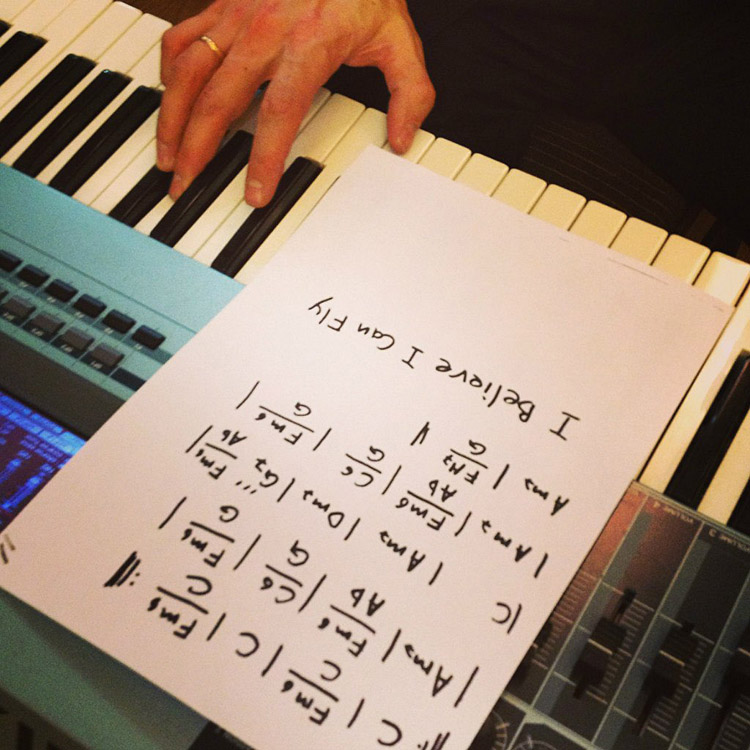 ‖: C | Fm6/C | C | Fm6/C :‖
| Am7 | Fm6/Ab | C6/G | Fm6/G |
| C | Am7 | Dm7 | G7 ... Fm6/Ab |
| Am7 | Fm6/Ab | C6/G | Fm6/G |
Am7 | FM7/G
I Believe I Can Fly
VOLUME 3
VOLUME 4